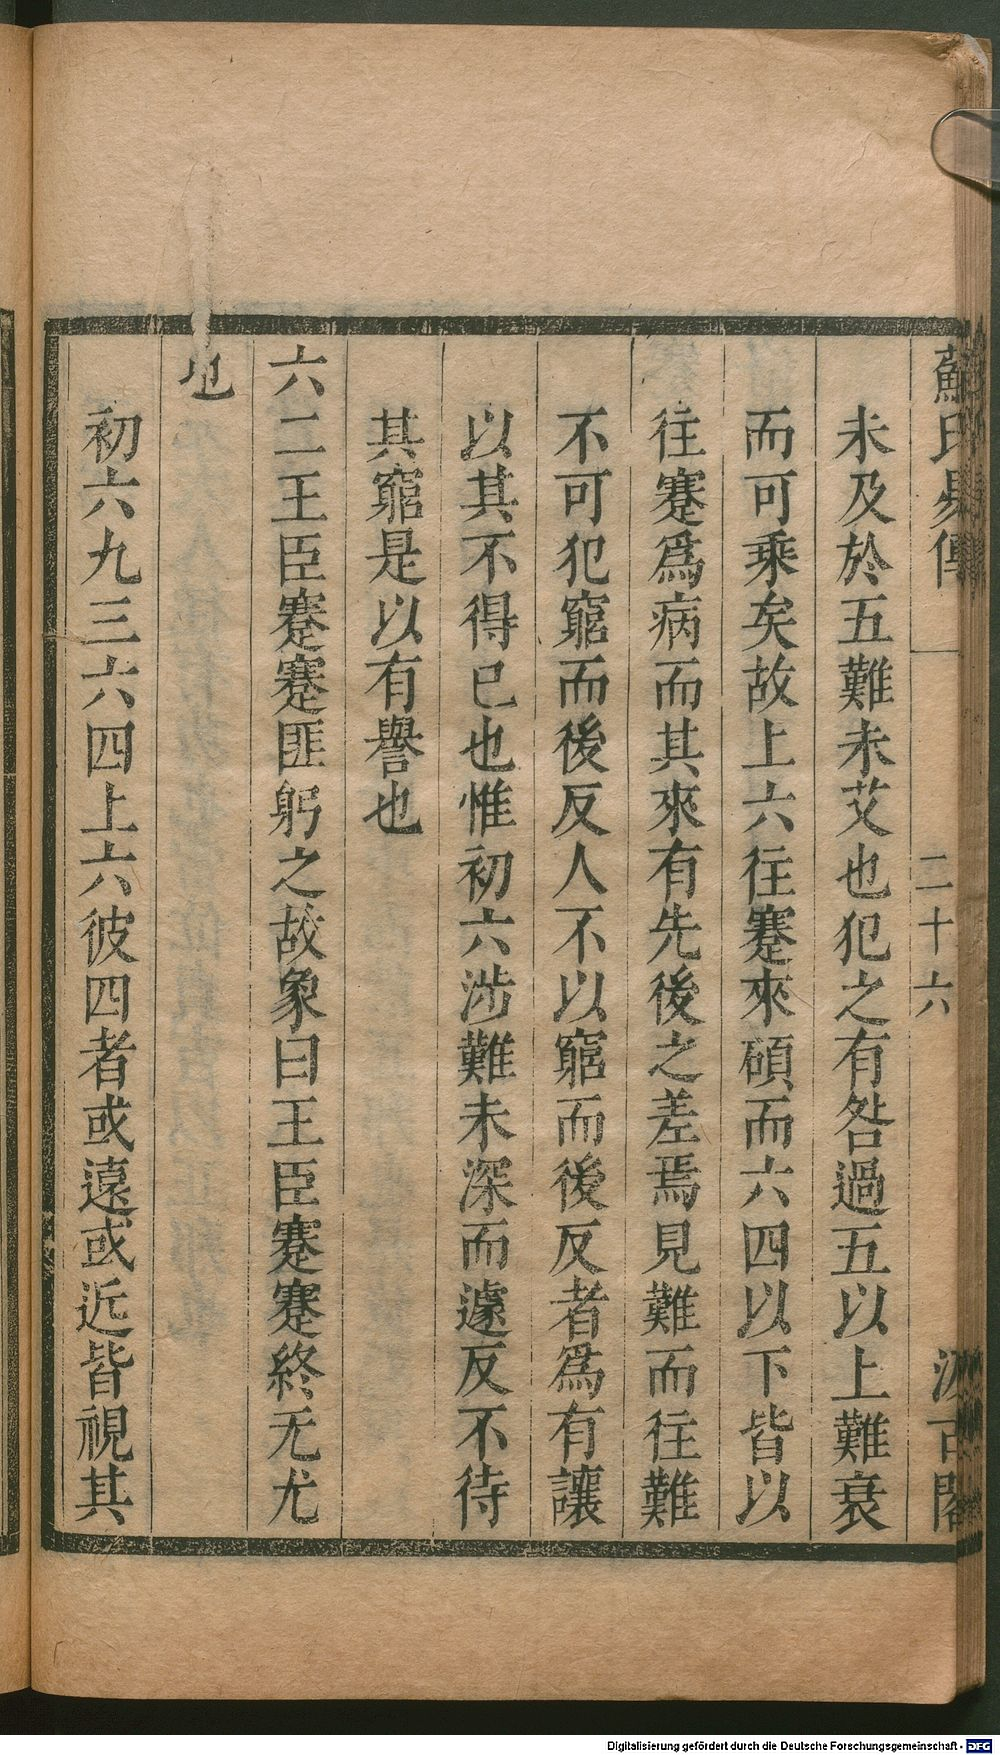 蘇氏易傳 二十六 汲古閣
未及於五難未艾也犯之有咎過五以上難衰
而可乘矣故上六往蹇來碩而六四以下皆以
往蹇爲病而其來有先後之差焉見難而往難
不可犯窮而後反人不以窮而後反者爲有讓
以其不得已也惟初六涉難未深而遽反不待
其窮是以有譽也
六二王臣蹇蹇匪躬之故象曰王臣蹇蹇終无尤
也
初六九三六四上六彼四者或遠或近皆視其
Digitalisierung gefördert durch die Deutsche Forschungsgemeinschaft - DFG